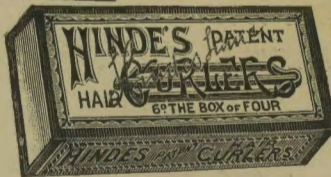 HINDE'S PATENT
HAIR CURLERS
6D THE BOX OF FOUR
HINDES HAIR CURLERS.